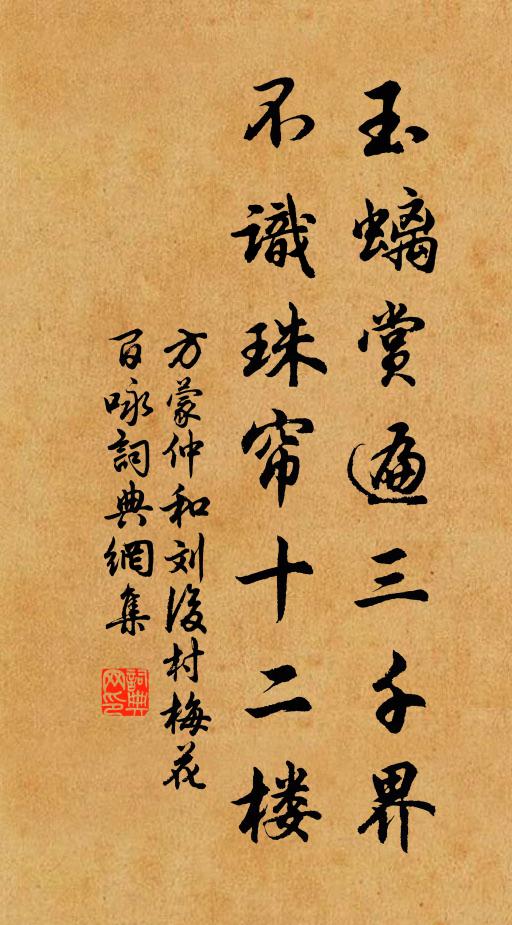 玉螭赏遍三千界
不識珠帘十二楼
方蒙仲和刘後村梅花
百咏詞典網集
詞典网印